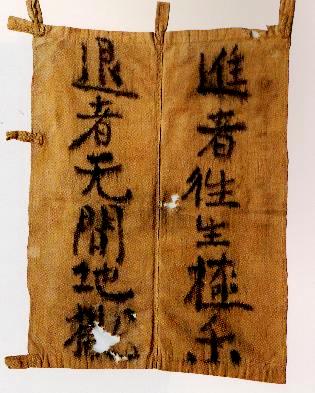 進者往生極楽
退者无間地獄